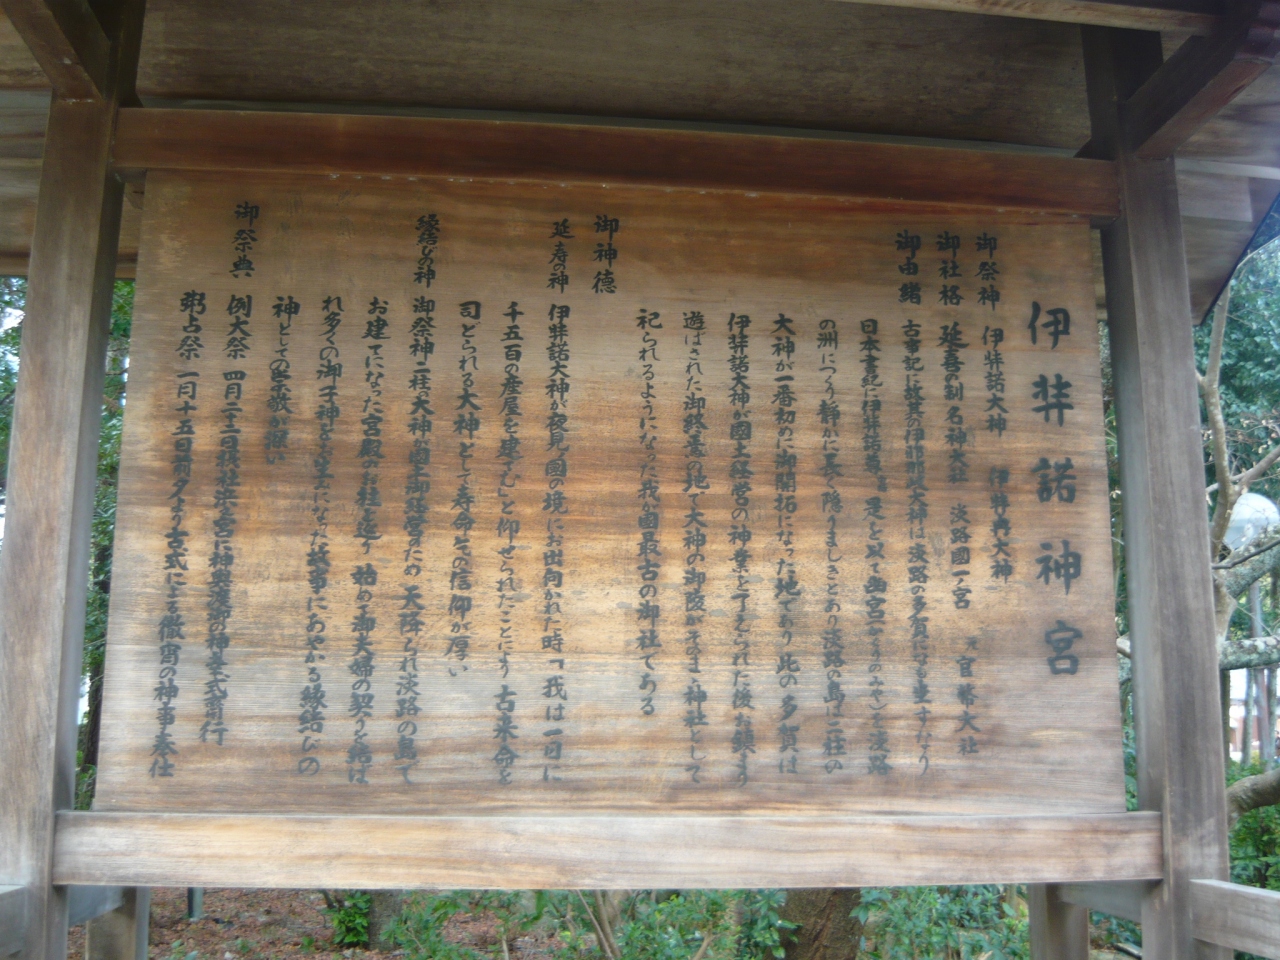 伊弉諾神宮
御祭神 伊弉諾大神 伊弉冉大神
御社格 延喜の制名神大社 淡路國一宮 元官幣大社
御由緒 古事記に故其の伊耶那岐大神は淡路の多賀になも坐すなり
日本書紀に伊弉諾尊 是を以て幽宮(かくりのみや)を淡路
の洲につくり静かに長く隠りましきとあり 淡路の島は二柱の
大神が一番初めに御開拓になった地であり 此の多賀は
伊弉諾大神が國土経営の神業を了えられた後お鎮まり
遊ばされた御終焉の地で大神の御陵がそのまま神社として
祀られるようになった我が國最古の御社である
御神徳
延寿の神 伊弉諾大神が夜見の國の境にお出向かれた時「我は一日に
千五百の産屋を建てむ」と仰せられたことにより 古来命を
司どられる大神として寿命その信仰が厚い
縁結びの神 御祭神二柱の大神が國土御経営のため 天降られ淡路の島で
お建てになった宮殿のお柱を廻り 始めて御夫婦の契りを結ば
れ多くの御子神をお生みになった故事にあやかる縁結びの
神としての崇敬が深い
御祭典 例大祭 四月二十二日 浜宮に神輿渡御の神幸式斎行
粥占祭 一月十五日 前夕より古式による徹宵の神事奉仕